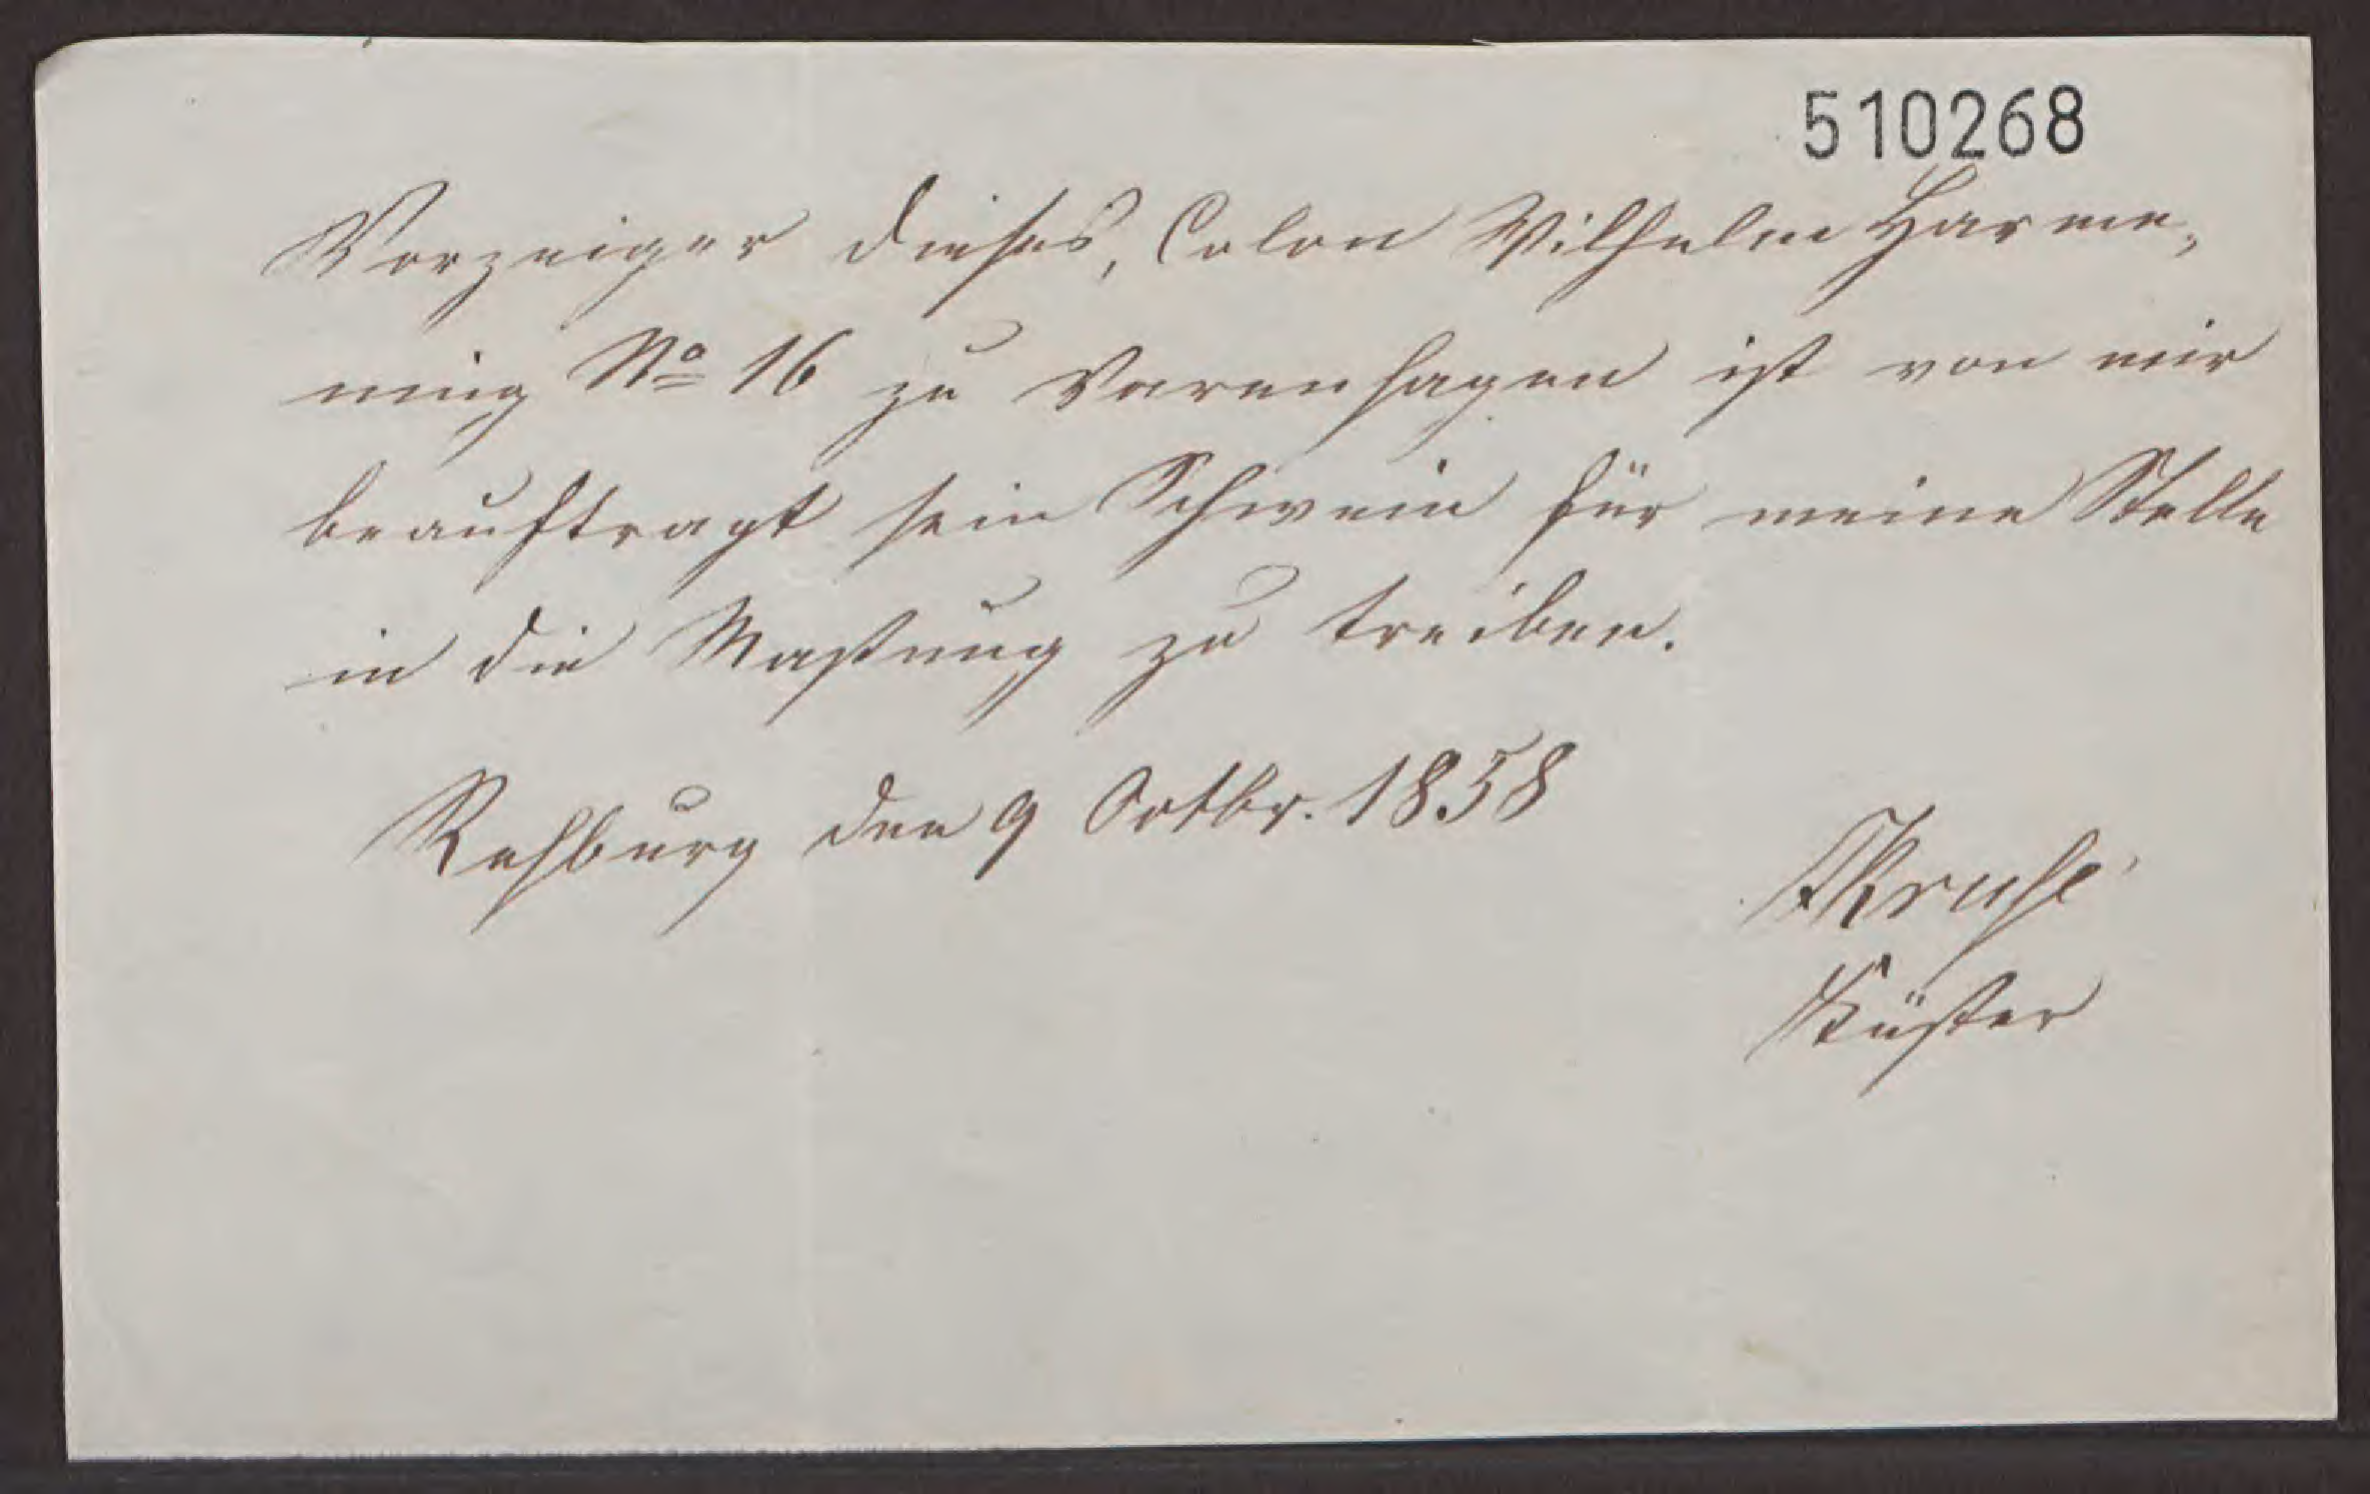 510268
Vorzeiger dieses, Colon Wilhelm Harme-
ning No 16 zu Varenhagen ist von mir
beauftragt sein Schwein für meine Stelle
in die Mastung zu treiben.
Rehburg den 9 Octbr. 1858
Kruse
Küster